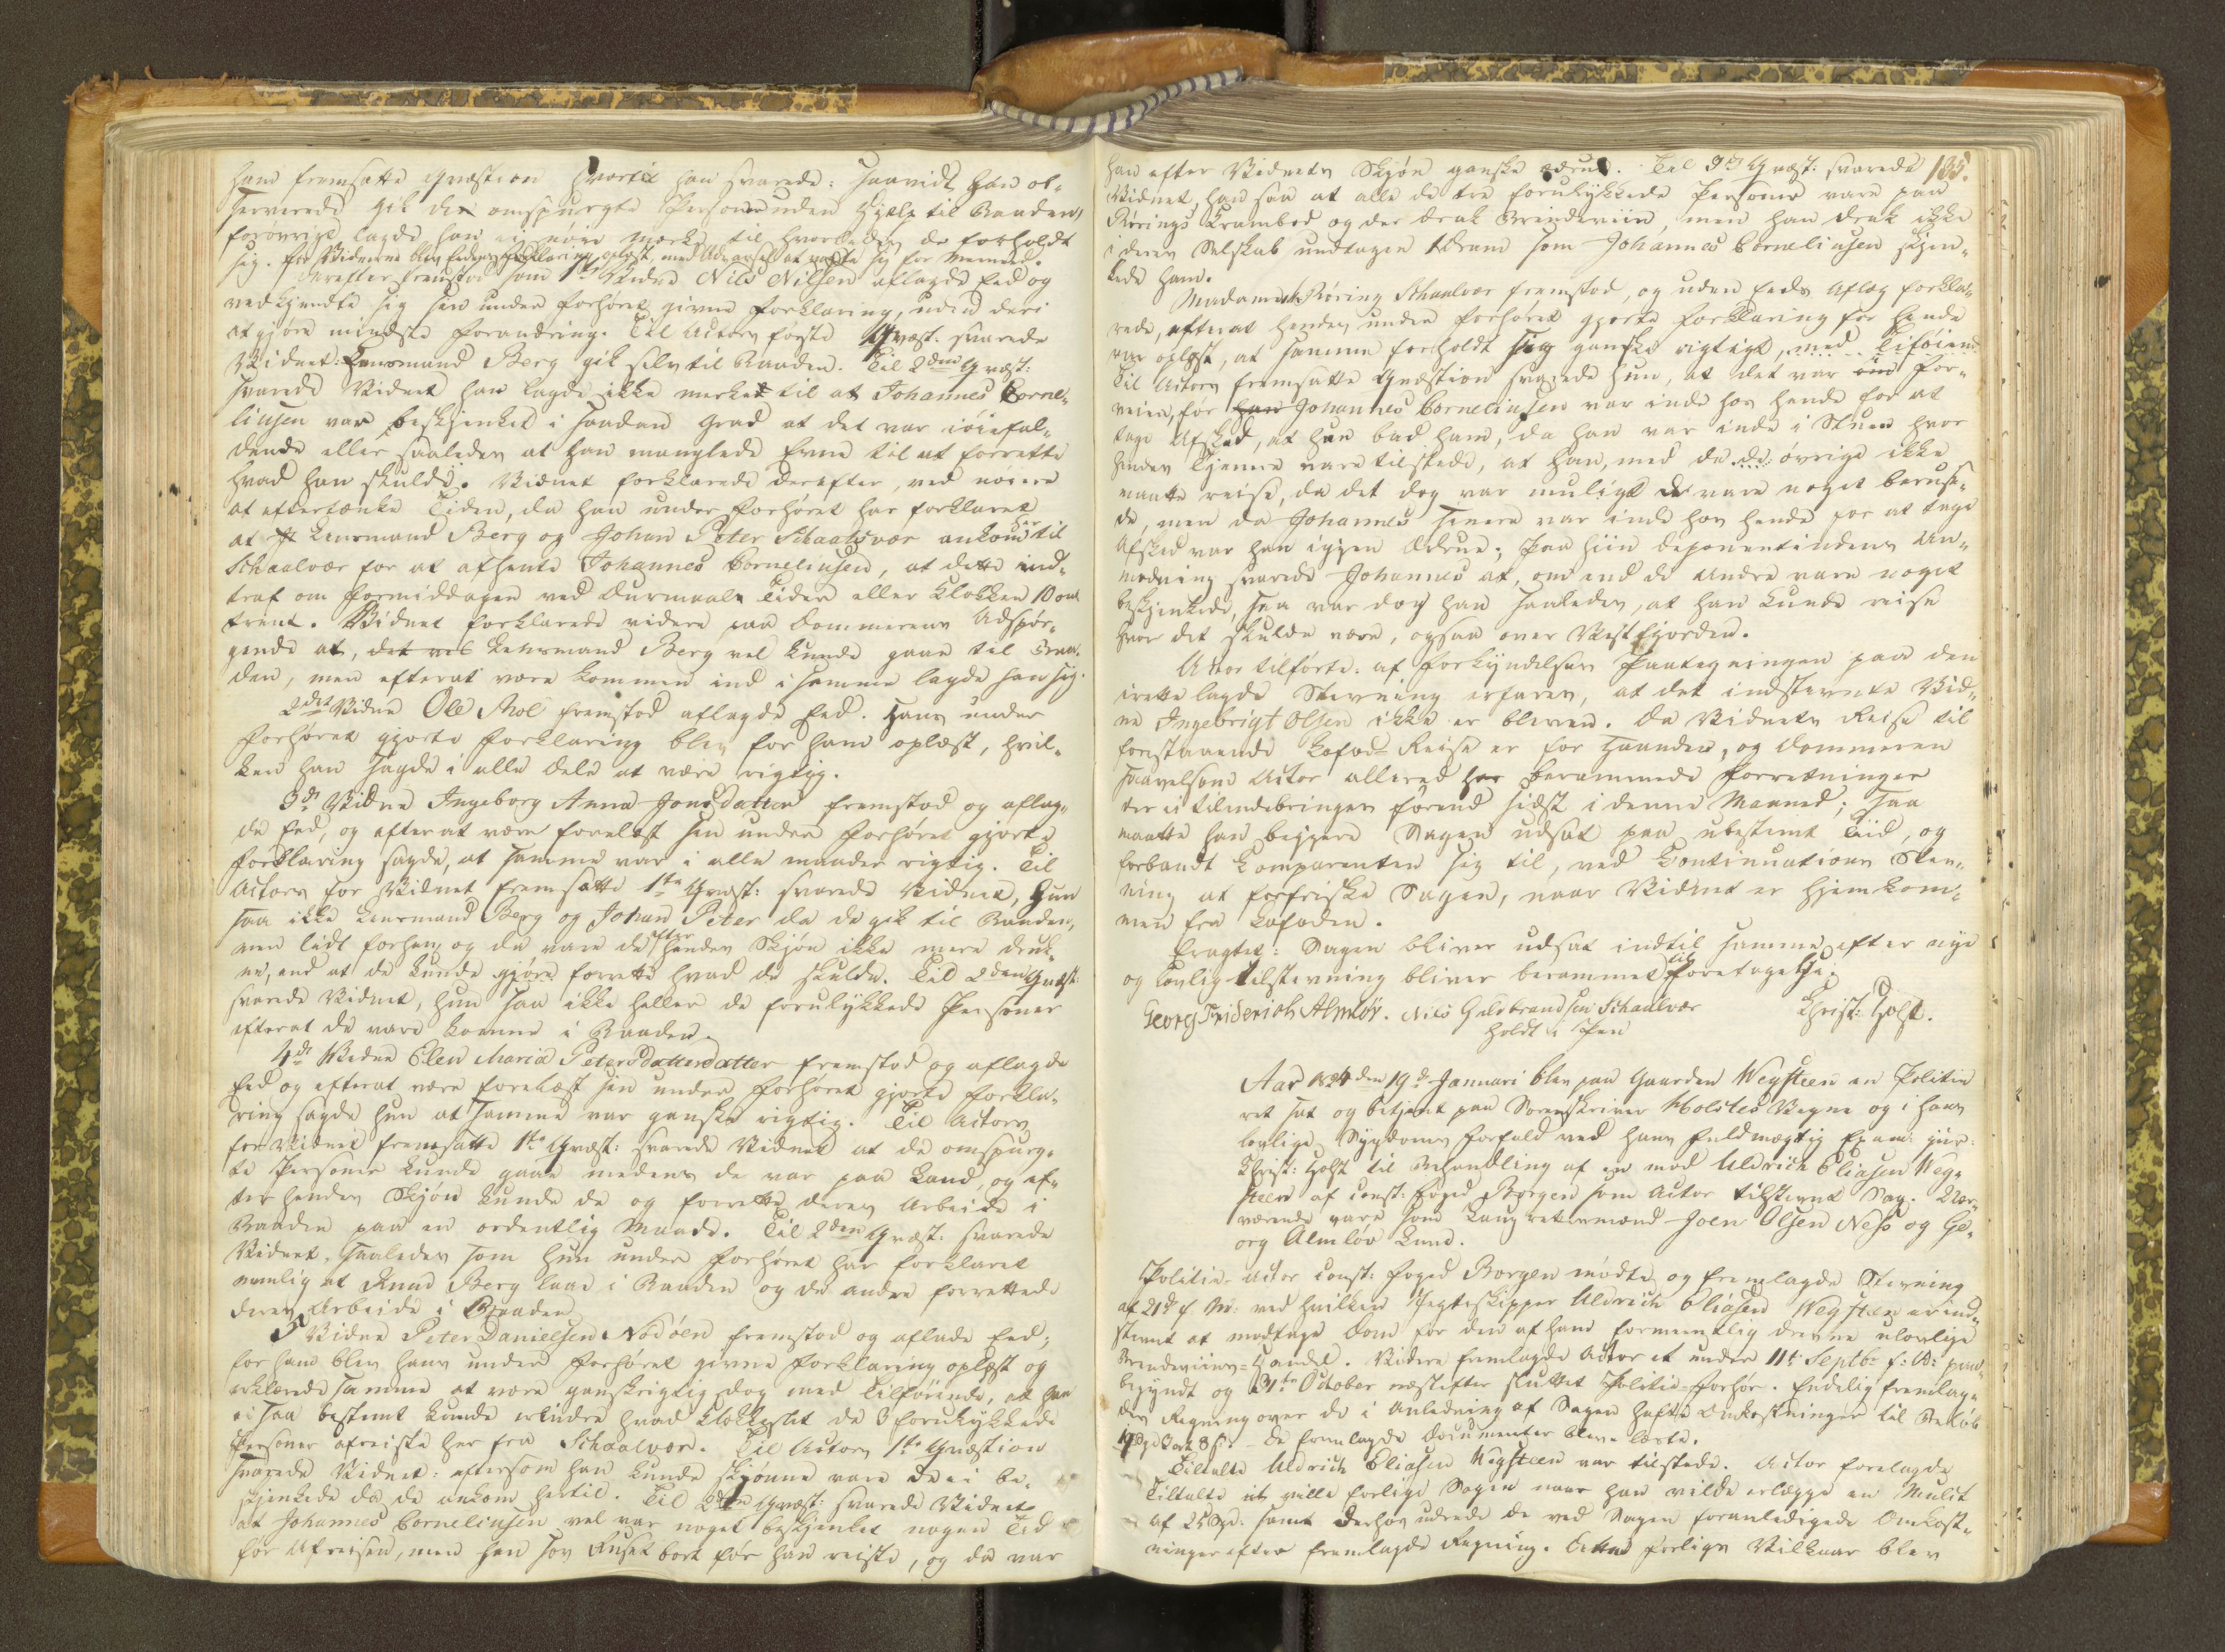 ham fremsatte Qvæstion hvortil han svarede: saavidt han ob-
serverede gik de omspurgte Personer uden Hjelp til Baaden,
forøvrigt lagde han ei nøie Mærke til hvorledes de forholdt
sig. For Vidnerne blev Edens Forklaring oplæst, med Advarsel at vogte sig for Meeneed.
Derefter fremstod som 1ste Vidne Nils Nilsen aflagde Eed og
vedkjendte sig sin under Forhøret givne Forklaring, uden deri
at gjøre mindste Forandring. Til Actors første Qvæst. svarede
Vidnet: Lensmand Berg gik selv til Baaden. Til 2den Qvæst:
svarede Vidnet han lagde ikke merke til at Johannes Corne-
liusen var beskjenket i saadan Grad at det var iøiefal-
dende eller saaledes at han manglede Evne til at forrette
hvad han skulde. Vidnet forklarede derefter, ved nøiere
at eftertænke Tiden, da han under Forhøret har forklaret
at Lensmand Berg og Johan Peter Schaalvær ankom til
Schaalvær for at afhente Johannes Corneliusen, at dette ind-
traf om Formiddagen ved Durmaals Tider eller Klokken 10 om-
trent. Vidnet forklarede videre paa Dommerens Adspør-
gende at, det vel Lensmand Berg vel kunde gaae til Baa-
den, men efterat være kommen ind i samme lagde han sig.
2det Vidne Ole Moe fremstod aflagde Eed. Hans under
Forhøret gjorte Forklaring blev for ham oplæst, hvil-
ken han sagde i alle Dele at være rigtig.
3de Vidne Ingeborg Anna Jonsdatter fremstod og aflag-
de Eed, og efter at være forelæst sin under Forhøret gjorte
Forklaring sagde, at samme var i alle maader rigtig. Til
Actors for Vidnet fremsatte 1ste Qvæst: svarede Vidnet, hun
saa ikke Lensmand Berg og Johan Peter da de gik til Baaden,
men lidt forhen, og da vare de efter hendes Skjøn ikke mere druk-
ne, end at de kunde gjøre forrette hvad de skulde. Til 2den Qvæst:
svarede Vidnet, hun saa ikke heller de forulykkede Personer
efterat de vare komne i Baaden.
4de Vidne Elen Maria Petersdatterdatter fremstod og aflagde
Eed og efterat være forelæst sin under Forhøret gjorte Forkla-
ring sagde hun at samme var ganske rigtig. Til Actors
for Vidnet fremsatte 1ste Qvæst: svarede Vidnet at de omspurg-
te Personer kunde gaae medens de var paa Land, og ef-
ter hendes Skjøn kunde de og forrette deres Arbeide i
Baaden paa en ordentlig Maade. Til 2den Qvæst: svarede
Vidnet, saaledes som hun under Forhøret har forklaret
nemlig at Knud Berg laae i Baaden og de andre forrettede
deres Arbeide i Baaden.
5 Vidne Peter Danielsen Nodøen fremstod og aflade Eed;
for ham blev hans under Forhøret givne Forklaring oplæst og
erklærede samme at være ganskerigtig dog med Tilføiende, at han
ei saa bestemt kunde erindre hvad Klokkeslet de 3 forulykkede
Personer afreiste her fra Schaalvær. Til Actors 1ste Qvæstion
svarede Vidnet: eftersom han kunde skjønne vare de ei be-
skjenkede da de ankom hertil. Til 2den Qvæst: svarede Vidnet
at Johannes Corneliusen vel var noget beskjenket nogen Tid
før Afreisen, men han sov Ruset bort før han reiste, og da var
135.
han efter Vidnets Skjøn ganske ædrue. Til 3de Qvæst: svarede
Vidnet, han saa at alle de tre forulykkede Personer vare paa
Rørings Krambod og der drak Brændeviin, men han drak ikke
i deres Selskab undtagen 1 Dram som Johannes Corneliusen skjen-
kede ham.
Madame Røring Schaalvær fremstod, og uden Eeds Aflæg forkla-
rede, efterat hendes under Forhøret gjorte Forklaring for hende
var oplæst, at samme forholdt sig ganske rigtigt, med Tiføiend
Til Actors fremsatte Qvæstion svarede hun, at det var om For-
veien, før han Johannes Corneliusen var inde hos hende for at
tage Afsked, at hun bad ham, da han var inde i Stuen hvor
hendes Tjenere vare tilstede, at han, med de de øvrige ikke
maatte reise, da det dog var muligt de vare noget beruse-
de, men da Johannes senere var inde hos hende for at tage
Afsked var han igjen Ædrue; paa hiin Deponentindens An-
modning svarede Johannes at, om end de Andre vare noget
beskjenkede, saa var dog han saaledes, at han kunde reise
hvor det skulde være, ogsaa over Vestfjorden.
Actor tilførte: af Forkyndelsens Paategningen paa den
irettelagde Stevning erfares, at det indstevnte Vid-
ne Ingebrigt Olsen ikke er bleven. Da Vidnets Reise til
forstaaende Lofod-Reise er for Haanden, og Dommeren
saavelsom Actor allered har berammede Forretninger
der ei tilendebringes førend sidst i denne Maaned; saa
maatte han begjere Sagen udsat paa ubestemt Tiid, og
forbandt Comparenten sig til, ved Continuations Stev-
ning at forfriske Sagen, naar Vidnet er hjemkom-
men fra Lofoden.
Eragtet: Sagen bliver udsat indtil samme efter nye
og lovlig tilstevning bliver berammet til Foretagelse.
Georg Friderich Almløv. Nils Guldbrandsen Schaalvær Christ: Holst.
holdt i Pen
Aar 1824 den 19de Januari blev paa Gaarden Wegsteen en Politie
ret sat og betjent paa Sorenskriver Holstes Vegne og i hans
lovlige Sygdoms Forfald ved hans Fuldmægtig Exam: jur:
Christ: Holst til Behandling af en mod Uldrich Eliasen Weg-
steen af const: Foged Borgen som Actor tilstevnt Sag. Nær-
værende vare som Laugrettesmænd Joen Olsen Ness og Ge-
org Almløv Lund.
Politie-Actor const: Foged Borgen mødte og fremlagde Stevning
af 21de f. M: ved hvilken Jegteskipper Uldrich Eliasen Wegsteen er ind-
stevnt at modtage Dom for den af ham formeentlig drevne ulovlige
Brændeviins-Handel. Videre fremlagde Actor et under 11te Septbr f: A: paa-
begyndt og 31te October næstefter sluttet Politie-Forhør. Endelig fremlag-
des Regning over de i Anledning af Sagen hafte Omkostninger til Beløb
de fremlagde Documenter bleve læste.
Tiltalte Uldrich Eliasen Wegsteen var tilstede. Actor forelagde
Tiltalte at ville forlige Sagen naar han vilde erlægge en Mulct
af 25 Spd: samt derhos udrede de ved Sagen foranledigede Omkost-
ninger efter fremlagde Regning. Dette Forligs Vilkaar blev